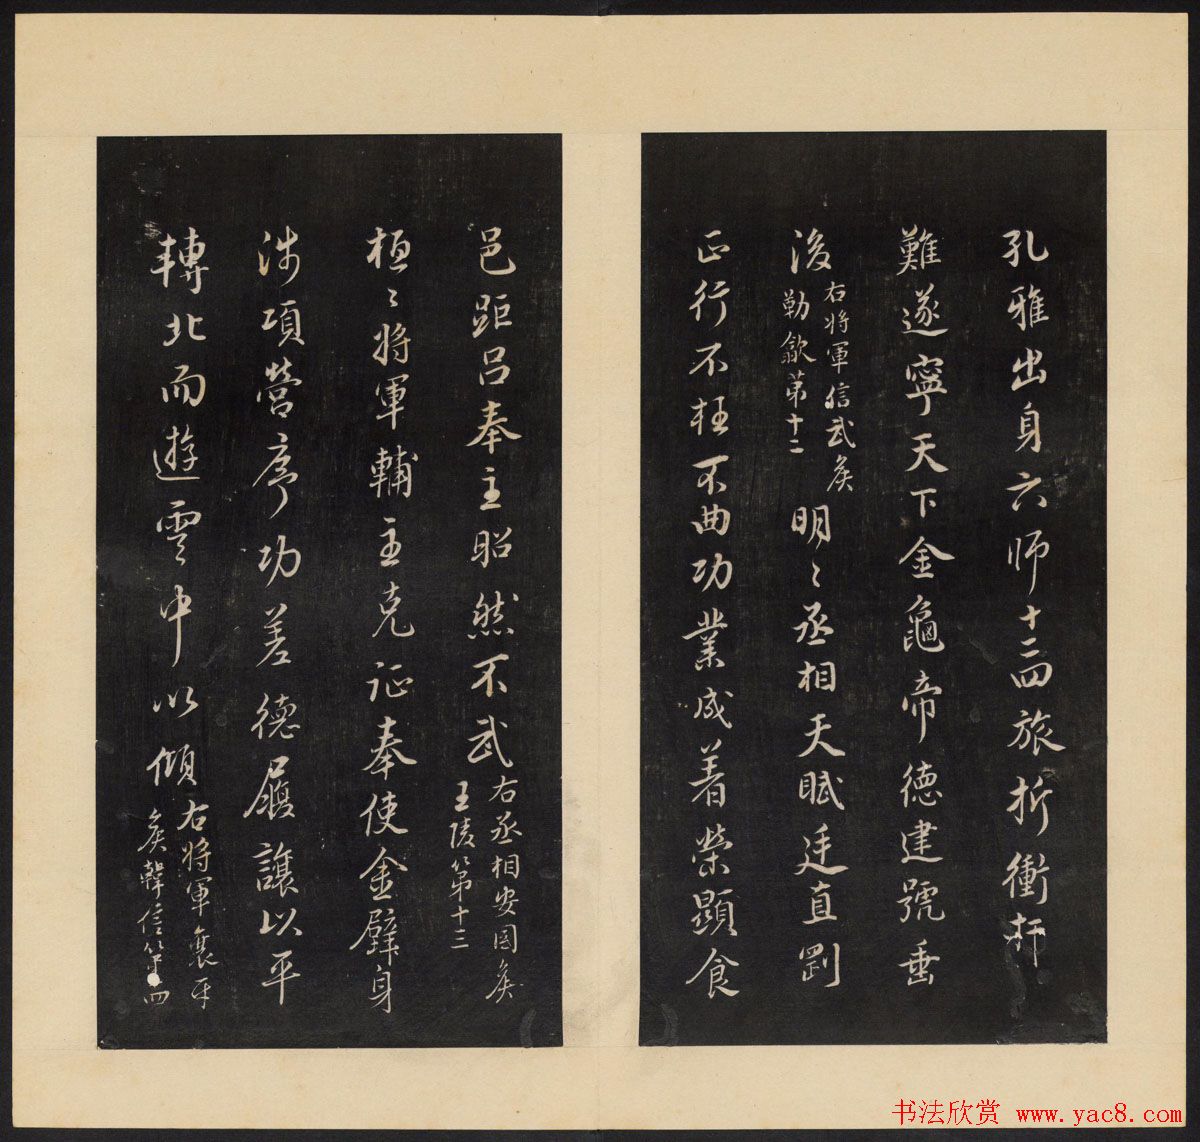 孔雅出身六師十二四旅折衝扞
難遂寧天下金龜帝德建號垂
後
右將軍信武矦
勒歙第十二
明〻丞相天賦廷直剛
正行不枉不曲功業成著榮顯食
邑距呂奉主昭然不武
右丞相安國矦
王陵第十三
桓〻將軍輔主克征奉使金璧身
涉項營序功差德履讓以平
轉北而遊雲中以傾
右將軍襄平
矦韓信第十四
书法欣赏 www.yac8.com